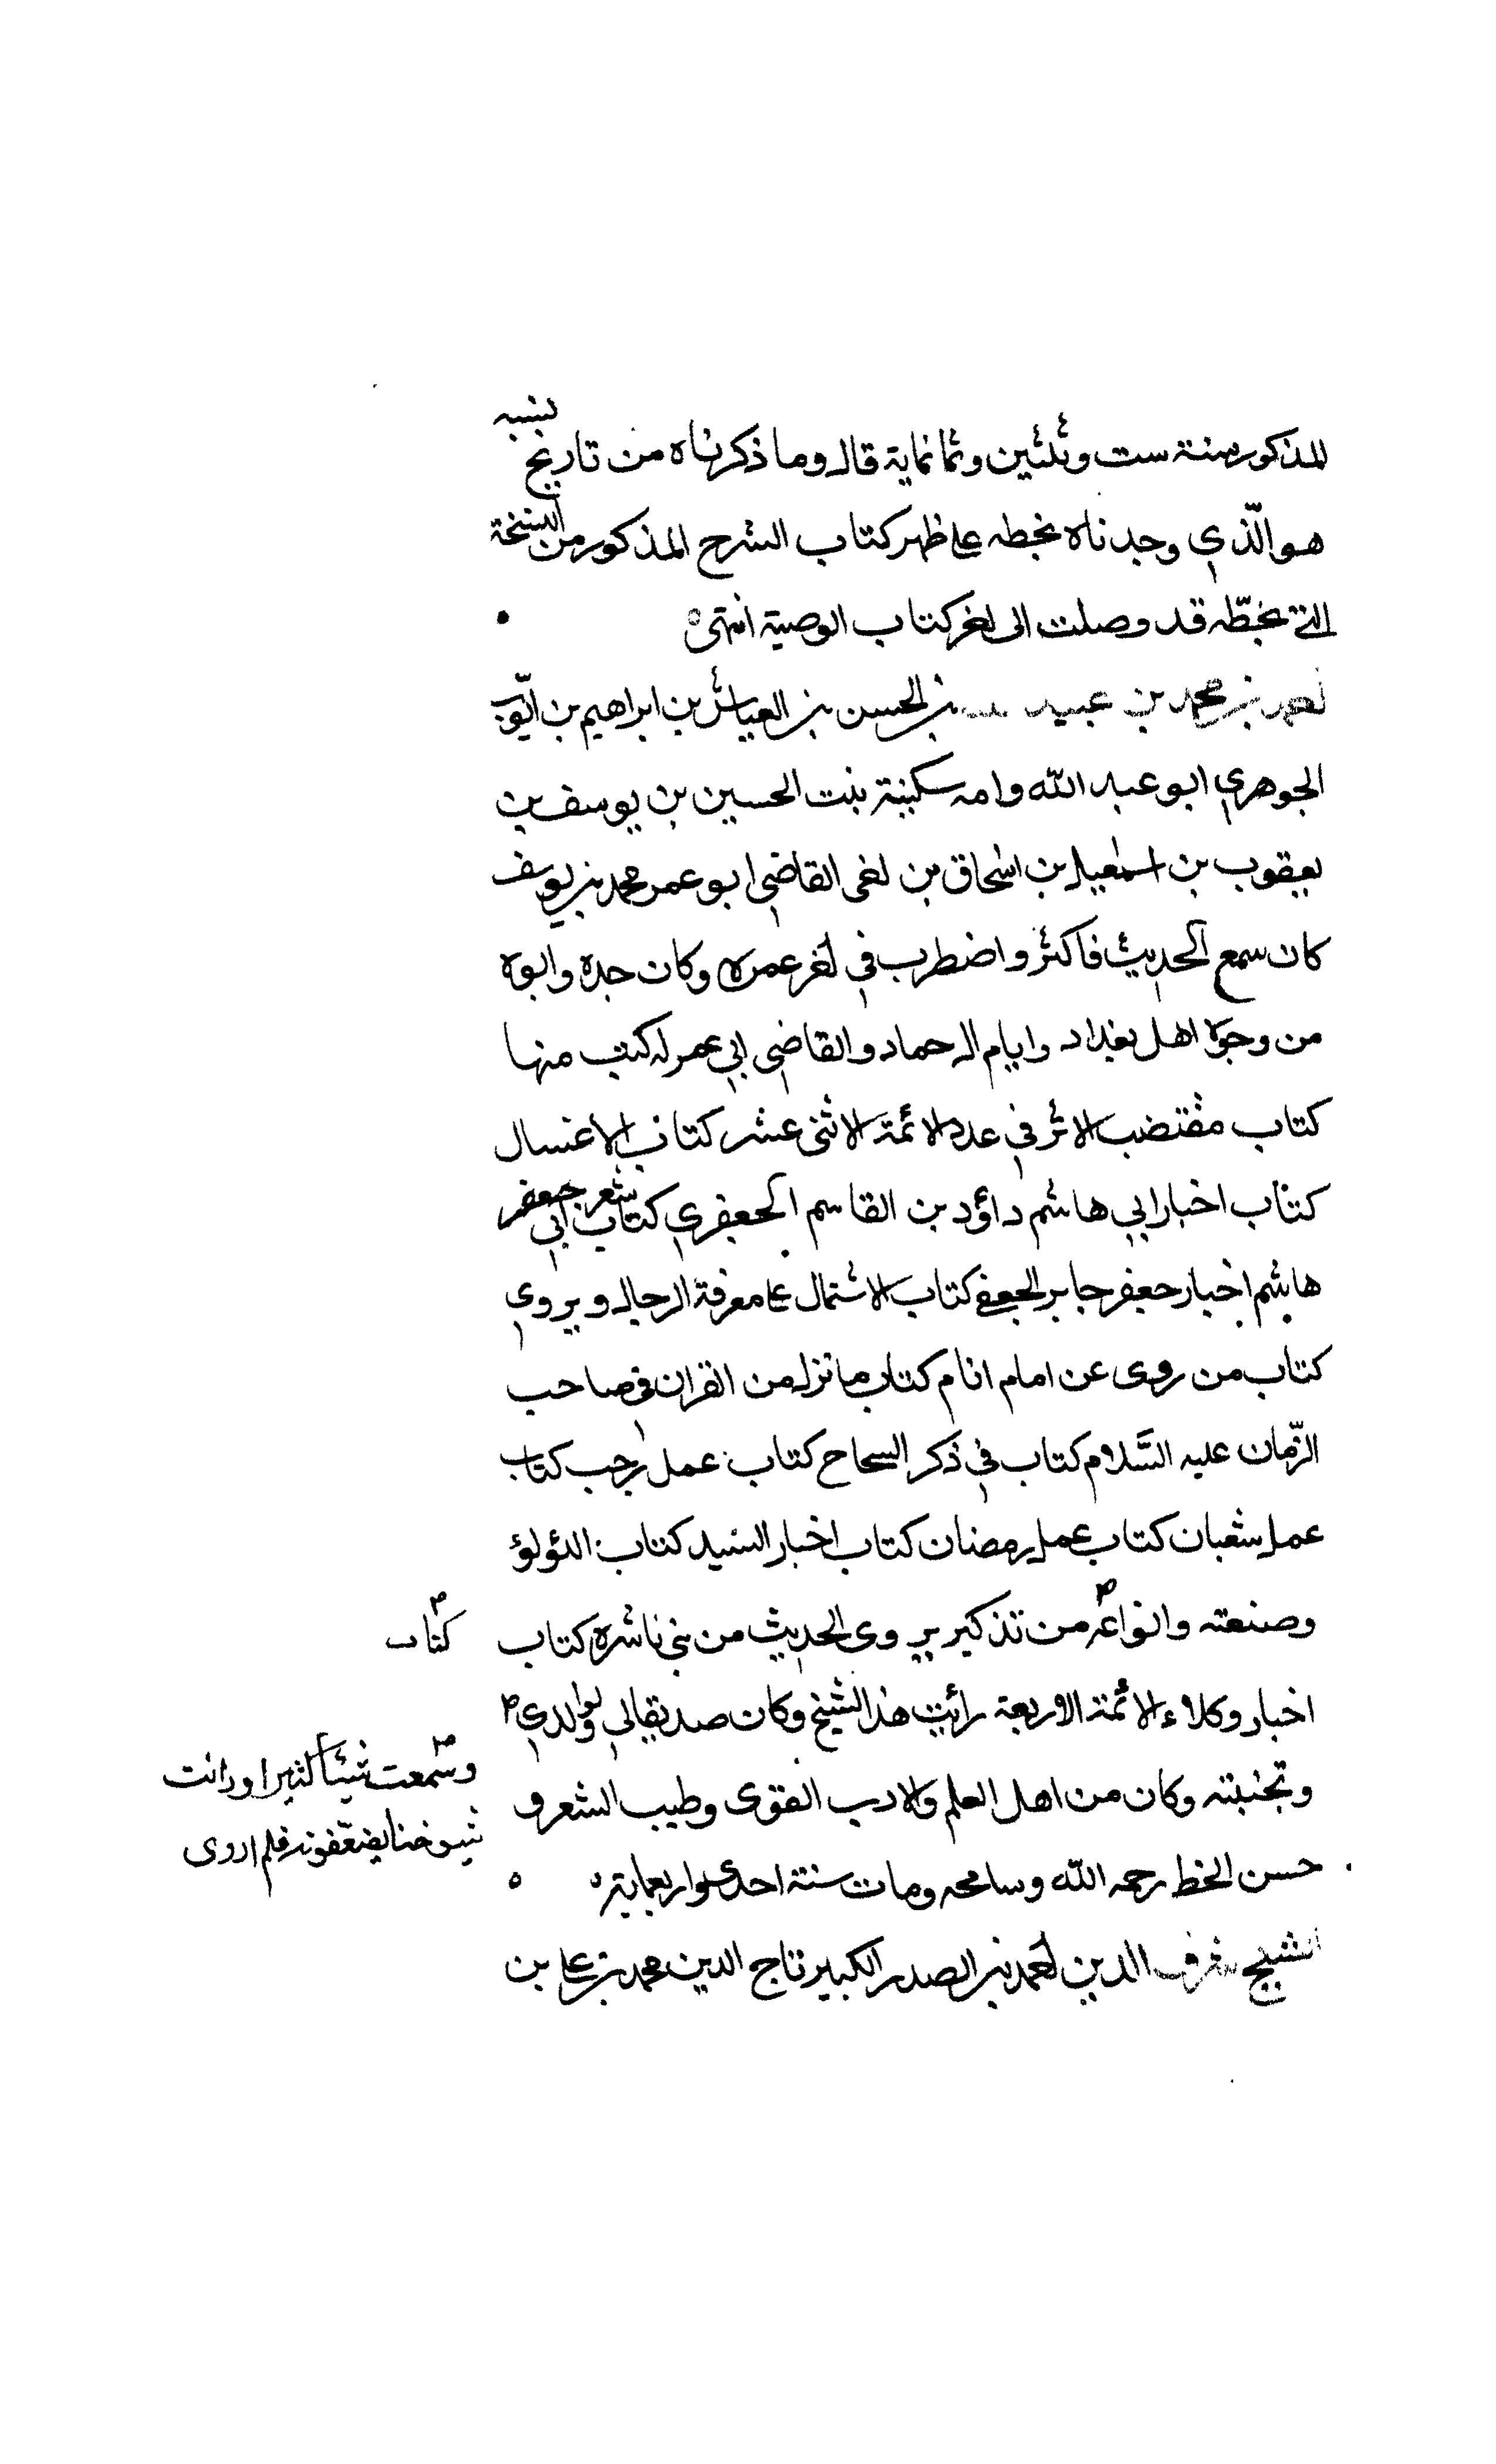 المذكور سنة ست وثلثين وثمانماية قال وما ذكرناه من تاريخ نسبه
هو الّذي وجدناه بخطه على ظهر كتاب الشرح المذكور من النسخة
التي بخطّه قد وصلت الى اخر كتاب الوصية انتهى
احمد بن محمد بن عبيد الله بن الحسن بن العياش بن ابراهيم بن ايّوب
الجوهري ابو عبد الله وامه سكينة بنت الحسين بن يوسف بن
يعقوب بن اسمعيل بن اسحاق بن اخى القاضي ابو عمر محمد بن يوسف
كان سمع الحديث فاكثر واضطرب في اخر عمره وكان جده وابوه
من وجوه اهل بغداد وايام ال حماد والقاضي ابي عمر له كتب منها
كتاب مقتضب الاثر في عدد الائمة الاثنى عشر كتاب الاغسال
كتاب اخبار ابي هاشم داؤد بن القاسم الجعفري كتاب شعر ابي جعفر
هاشم اخبار جعفر جابر الجعفي كتاب الاشتمال على معرفة الرجال ويروي
كتاب من روى عن امام امام كتاب ما نزل من القران في صاحب
الزّمان عليه السَّلام كتاب في ذكر السحاح كتاب عمل رجب كتاب
عمل شعبان كتاب عمل رمضان كتاب اخبار السيد كتاب اللؤلؤ
وصنعته وانواعه من تذكير يروى الحديث من بني ناشرة كتاب
كتاب
اخبار وكلاء الائمة الاربعة رأيت هذا الشيخ وكان صديقا لي ولوالدي
وسمعت شيئا كثيرا ورأيت
شيوخنا يضعّفونه فلم اروى
وتجنبته وكان من اهل العلم والادب القوى وطيب الشعر و
حسن الخط رحمه الله وسامحه ومات سنة احدى واربعماية
الشيخ شرف الدين احمد بن الصدر الكبير تاج الدين محمد بن علي بن